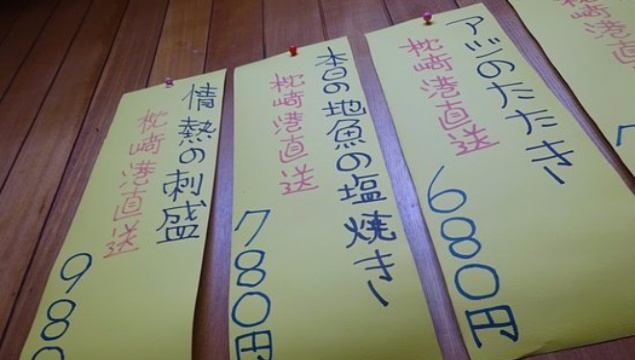 アジのたたき
枕崎港直送
680円
本日の地魚の塩焼き
枕崎港直送
780円
情熱の刺盛
枕崎港直送
980